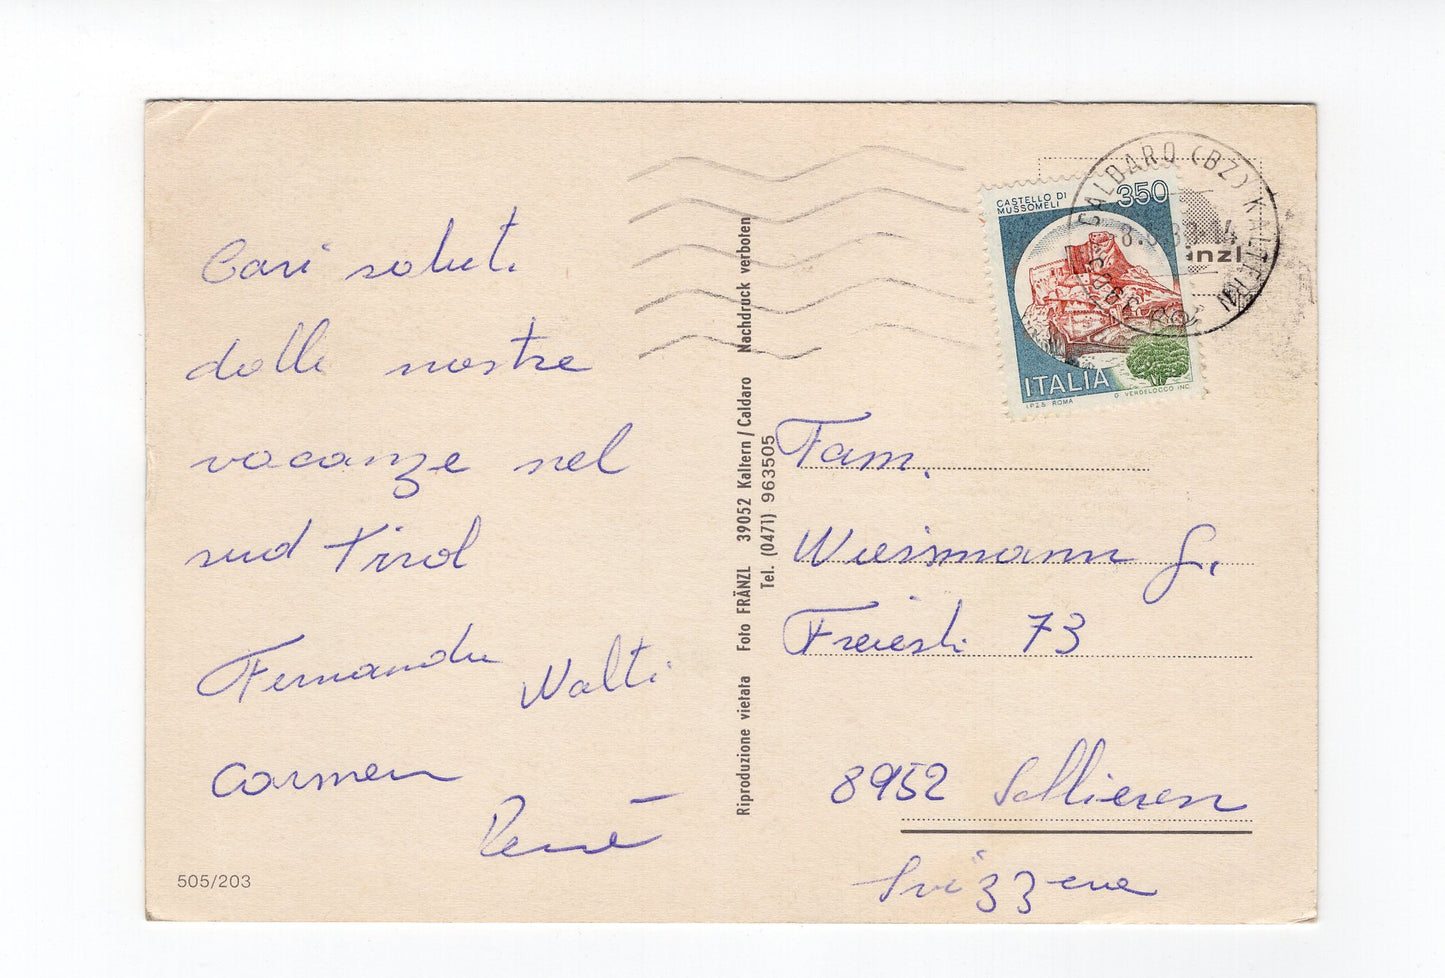 Cari saluti
dalle nostre
vacanze nel
sud Tirol
Fernanda Walti
Carmen
René
505/203
Riproduzione vietata Foto FRÄNZL 39052 Kaltern / Caldaro Nachdruck verboten
Tel. (0471) 963505
CASTELLO DI
MUSSOMELI
350
ITALIA
I.P.Z.S. ROMA
D. VERDELOCCO INC.
CALDARO (BZ) KALTERN
39052
Fam.
Wiesmann G.
Freiestr. 73
8952 Schlieren
Svizzera